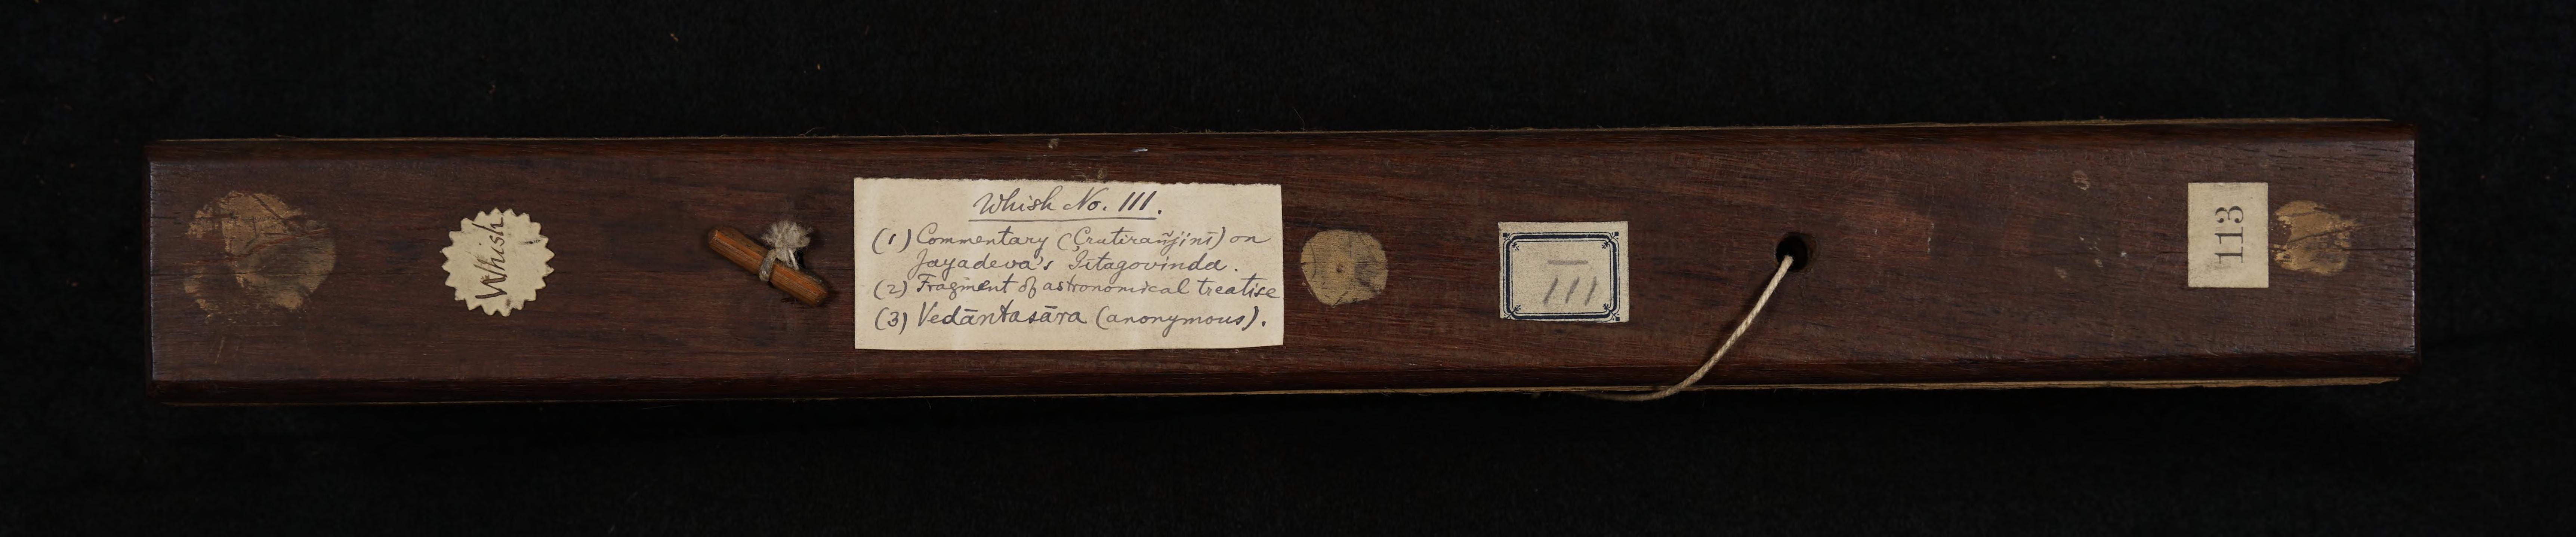 Whish
Whish No. 111.
(1) Commentary (Çrutirañjinī) on
Jayadeva's Gītagovinda.
(2) Fragment of astronomical treatise
(3) Vedāntasāra (anonymous).
111
113